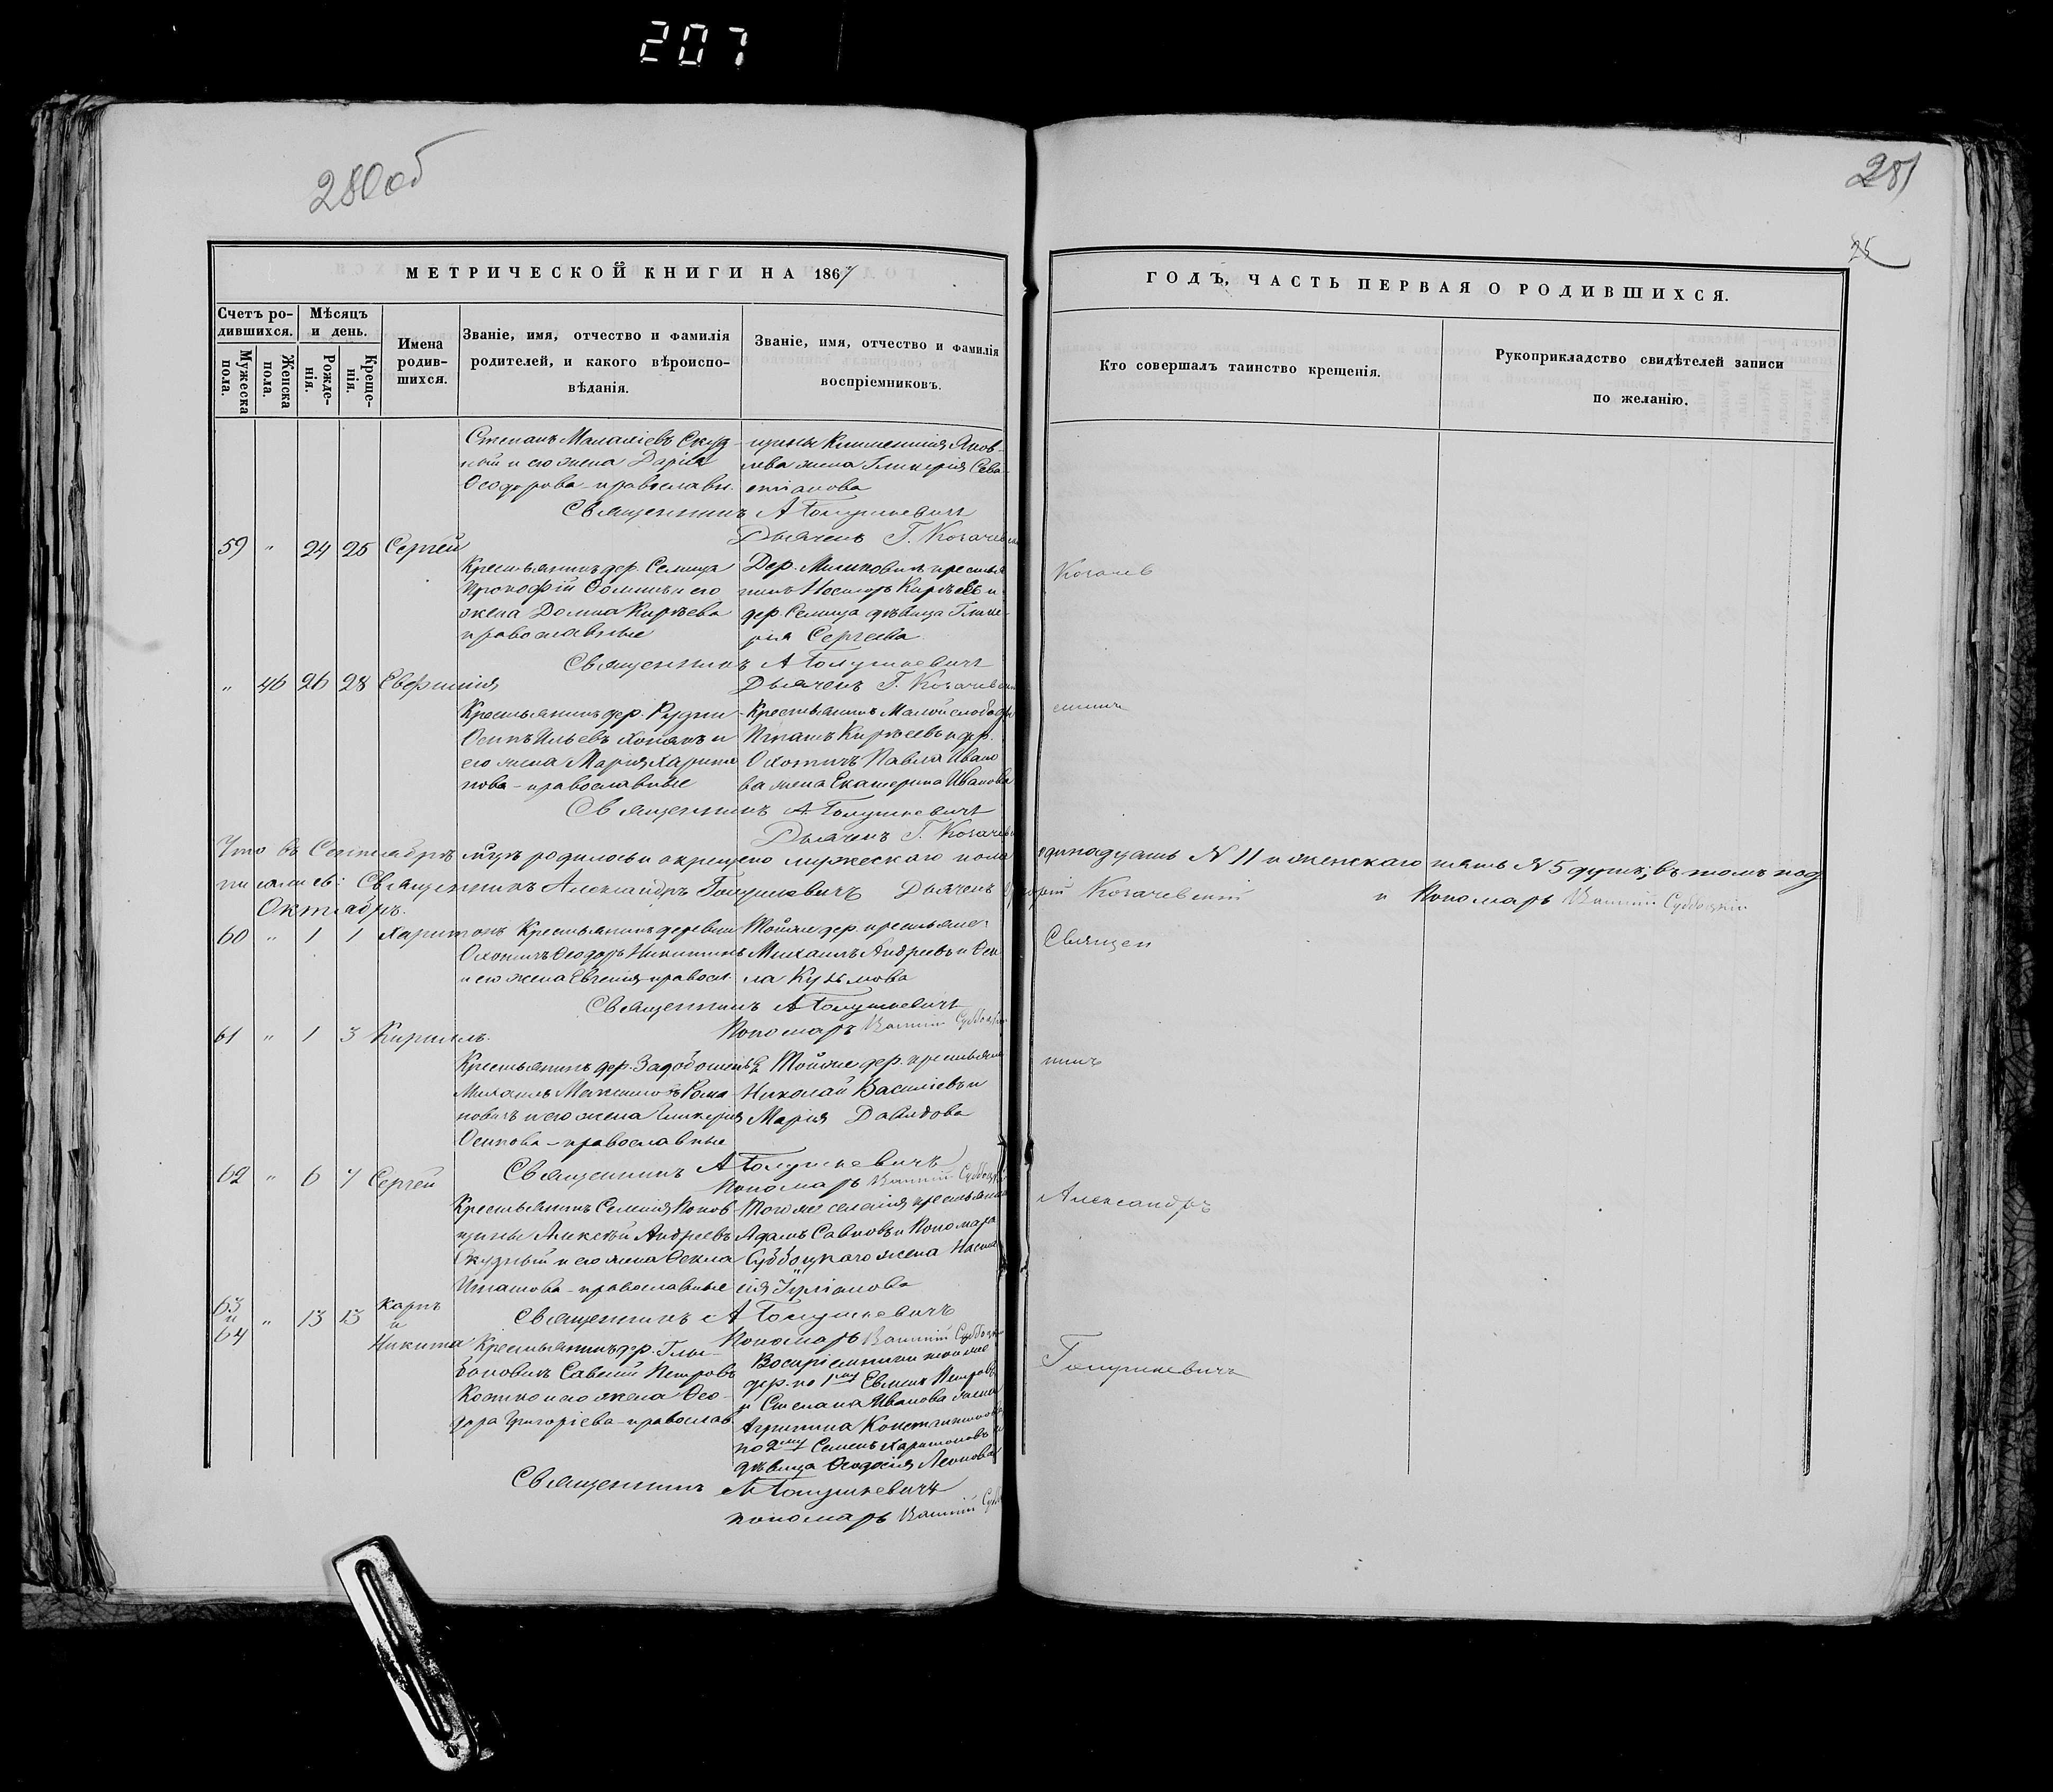 207
280об
281
25
МЕТРИЧЕСКОЙ КНИГИ НА 1867
ГОДЪ, ЧАСТЬ ПЕРВАЯ О РОДИВШИХСЯ.
Счетъ родившихся.
Мужеска пола.
Женска пола.
Мѣсяцъ и день.
Рожденія.
Крещенія.
Имена родившихся.
Званіе, имя, отчество и фамилія
родителей, и какого вѣроиспо-
вѣданія.
Званіе, имя, отчество и фамилія
воспріемниковъ.
Кто совершалъ таинство крещенія.
Рукоприкладство свидѣтелей записи
по желанію.
Степанъ Малахіевъ Скуд-
ный и его жена Дарія
Ѳеодорова - православн.
щины Климентія Яков-
лева жена Гликерія Сева-
стіанова
Священникъ А Голушкевичъ
Дьячекъ Г. Козачевскі
59 " 24 25 Сергѣй
Крестьянинъ дер. Селища
Прокофій Ѳоминъ и его
жена Домна Кирѣева
православные
Дер. крестьян
нинъ Несторъ Кирѣевъ и
дер. Селища дѣвица Глике-
рія Сергѣева
Козачев
Священникъ А Голушкевичъ
Дьячекъ Г. Козачевскі
" 46 26 28 Евфимія
Крестьянинъ дер. Рудни
Осипъ Ильевъ и
его жена Марія Харито
нова - православные
Крестьянинъ Малой слободы
Игнатъ Кирѣевъ и дер.
Охотичъ Павла Ивано
ва жена Екатерина Иванова
Священникъ А. Голушкевичъ
Дьячекъ Г. Козачевс
Что въ Сентябрѣ мцѣ родилось и окрещено мужескаго пола одинадцать N 11 и женскаго пять N 5 душъ; въ томъ под
писались: Священникъ Александръ Голушкевичъ Дьячекъ Григорій Козачевскій и Пономарь Василій Субботскій
Октябрь.
60 " 1 1 Харитонъ
Крестьянинъ деревни
Охотичъ Ѳеодоръ Никитинъ
и его жена Евгенія - правосл.
Тойже дер. крестьяне
Михаилъ Андреевъ и Ѳек
ла Кузьмова
Священ
Священникъ А Голушкевичъ
Пономарь Василій Субботскій
61 " 1 3 Кириллъ.
Крестьянинъ дер.
Михаилъ Рома
новичъ и его жена Гликерія
Осипова - православные
Тойже дер. крестьяне
Николай Василіевъ и
Марія Давидова
никъ
Священникъ А Голушкевичъ
Пономарь Василій Субботскій
62 " 6 7 Сергѣй
Крестьянинъ Селенія Попов-
щины Алексѣй Андреевъ
Скудный и его жена Ѳекла
Игнатова - православные
Того же селенія крестьянин
Адамъ Савиновъ и Пономаря
Субботскаго жена Наста
сія Іуліанова
Александръ
Священникъ А Голушкевичъ
Пономарь Василій Субботск
63 и 64 " 13 13 Карпъ и Никита
Крестьянинъ дер. Глы-
боковичъ Савелій Петровъ
и его жена Ѳео-
дора Григоріева - православ.
Воспріемники тойже
дер. по 1му Евменъ Петровъ
и Степана Иванова жена
Агрипина Константинова
по 2му Семенъ Харитоновъ и
дѣвица Ѳеодосія Леонова
Голушкевичъ
Священникъ А Голушкевичъ
Пономарь Василій Субб